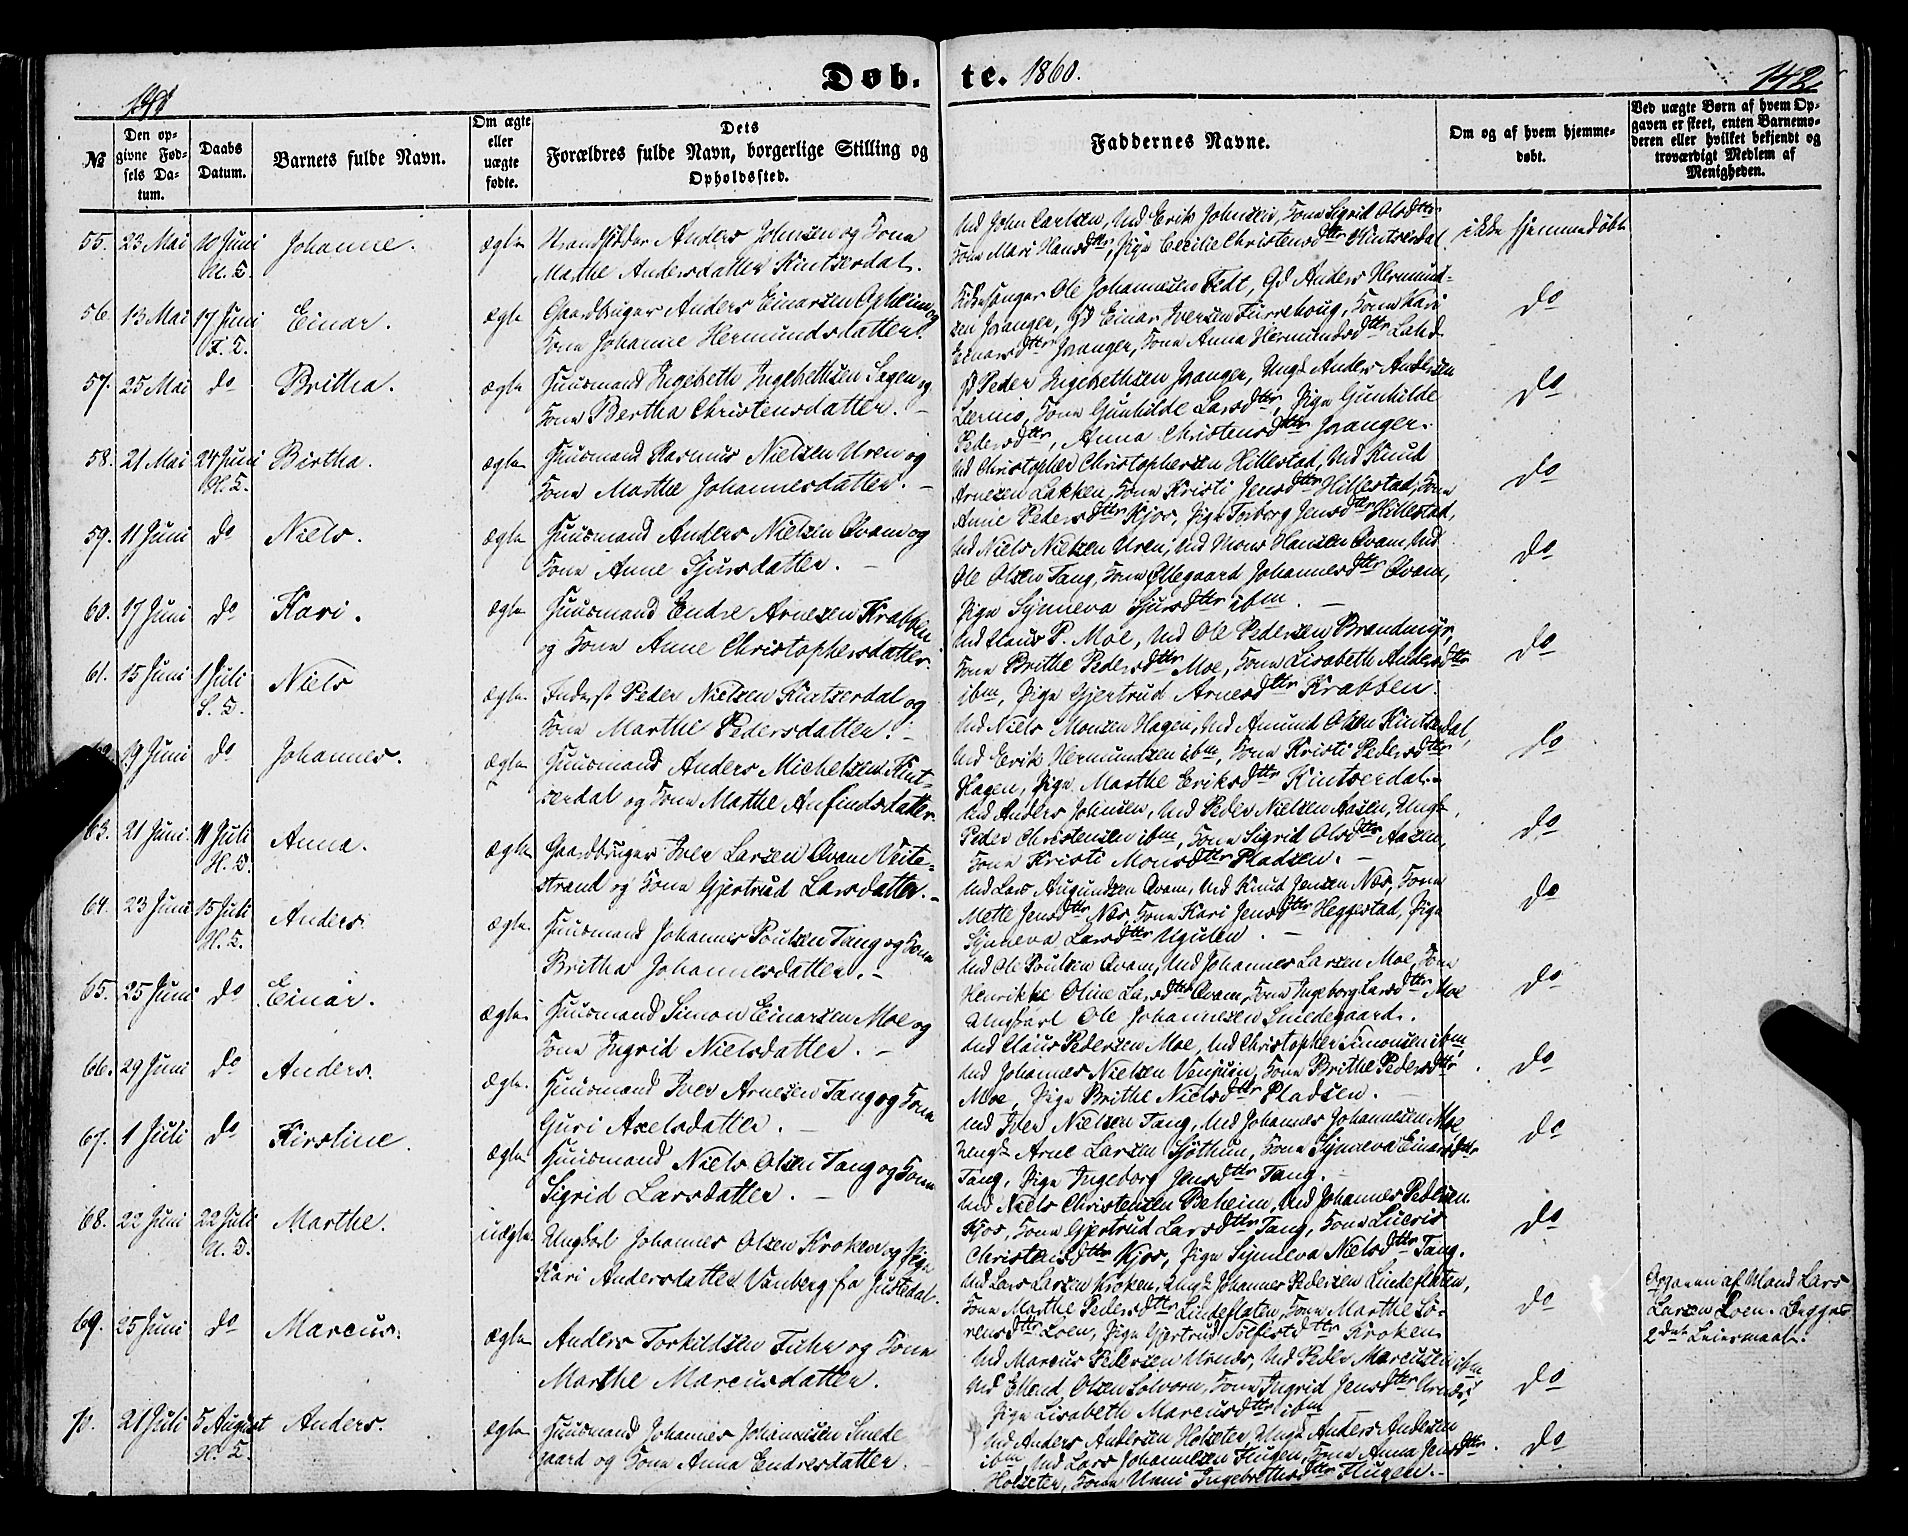 Døb. te. 1860.
142
№
Den opgivne Fødsels Datum.
Daabs Datum.
Barnets fulde Navn.
Om ægte eller uægte fødte.
Dets Forældres fulde Navn, borgerlige Stilling og Opholdssted.
Faddernes Navne.
Om og af hvem hjemmedøbt.
Ved uægte Børn af hvem Opgaven er skeet, enten Barnemoderen eller hvilket bekjendt og troværdigt Medlem af Menigheden.
55. 23 Mai 10 Juni Johanne. ægte Strandsidder Anders Johnsen og Kone
Marthe Andersdatter Kintserdal.
Md John Carlsen, Md Erik Johnsen, Kone Sigrid Olsdttr
Kone Mari Hansdttr, Pige Cecilie Christensdttr Kintserdal
ikke hjemmedøbt
56. 13 Mai 17 Juni Einar. ægte Gaardbruger Anders Einarsen Opheim og
Kone Johanne Hermundsdatter.
Kirkesanger Ole Johannesen Fedt, Gd Anders Hermund-
sen Jvanger, Gd Einar Iversen Furrehoug, Kone Kari
Einarsdttr Jvanger, Kone Anna Hermundsdttr Lahd
do
57. 25 Mai do Britha. ægte Huusmand Ingebeth Ingebethsen Lægen og
Kone Bertha Christensdatter. –
Gd Peder Ingebethsen Jvanger, Ungk Anders Andersen
Lermo, Kone Gunhilde Larsdttr, Pige Gunhilde
Pedersdttr, Anna Christensdttr Jvanger.
do
58. 21 Mai 24 Juni Birtha. ægte Huusmand Rasmus Nielsen Uren og
Kone Marthe Johannesdatter. –
Md Christopher Christophersen Hillestad, Md Knud
Arnesen Løkken, Kone Kristi Jensdttr Hillestad, Kone
Anne Pedersdttr Kjos, Pige Torborg Jensdttr Hillestad,
do
59. 11 Juni do Niels. ægte Huusmand Anders Nielsen Qvam og
Kone Anne Sjursdatter. –
Md Niels Nielsen Uren, Md Mons Hansen Qvam, Md
Ole Olsen Tang, Kone Ellegaard Johannesdttr Qvam,
Pige Synneva Sjursdttr ibm. –
do
60. 17 Juni do Kari. ægte Huusmand Endre Arnesen Krabben
og Kone Anne Christophersdatter.
Md Claus P. Moe, Md Ole Pedersen Brandmyr,
Kone Brithe Pedersdttr Moe, Kone Lisabeth Andersdttr
ibm, Pige Gjertrud Arnesdttr Krabben.
do
61. 15 Juni 1 Juli Niels ægte Inderst Peder Nielsen Kintserdal og
Kone Marthe Pedersdatter. –
Md Niels Monsen Hagen, Md Amund Olsen Kintserdal,
Md Erik Hermundsen ibm, Kone Kristi Pedersdttr
Hagen, Pige Marthe Eriksdttr Kintserdal.
do
19 Juni do Johannes. ægte Huusmand Anders Michelsen Kint-
serdal og Kone Mathe Anfindsdatter
Md Anders Johnsen, Md Peder Nielsen Aasen, Ungk,
Peder Christensen ibm, Kone Sigrid Olsdttr Aasen,
Kone Kristi Monsdttr Pladsen. –
do
63. 21 Juni. 11 Juli Anna. ægte Gaardbruger Iver Larsen Qvam Veite-
strand og Kone Gjertrud Larsdatter. –
Md Lars Augundsen Qvam, Md Knud Jensen Næs, Kone
Mette Jensdttr Næs, Kone Kari Jensdttr Heggestad, Pige
Synneva Larsdttr Ugulen. –
do
64. 23 Juni 15 Juli Anders. ægte Huusmand Johannes Poulsen Tang og Kone
Britha Johannesdatter. –
Md Ole Poulsen Qvam, Md Johannes Larsen Moe, Kone
Henrikke Oline Larsdttr Qvam, Kone Ingeborg Larsdttr Moe
Ungkarl Ole Johannesen Smedegaard.
do
65. 25 Juni do Einar. ægte Huusmand Simon Einarsen Moe og
Kone Ingrid Nielsdatter. –
Md Claus Pedersen Moe, Md Christopher Simonsen ibm
Md Johannes Nielsen, Kone Brithe Pedersdttr
Moe, Pige Brithe Nielsdttr Pladsen.
do
66. 29 Juni do Anders. ægte. Huusmand Iver Arnesen Tang og Kone
Guri Axelsdatter. –
Md Iver Nielsen Tang, Md Johannes Johannesen Moe
Ungk Arne Larsen Sjøthun, Kone Synneva Einarsdttr
Tang, Pige Ingeborg Jensdttr Tang.
do
67. 1 Juli do Kirstine. ægte Huusmand Niels Olsen Tang og Kone
Sigrid Larsdatter. –
Md Niels Christensen Beheim, Md Johannes Pedersen
Kjos, Kone Gjertrud Larsdttr Tang, Kone Lucris
Christensdttr Kjos, Pige Synneva Nielsdttr Tang.
do
68. 22 Juni 22 Juli Marthe. uægte Ungkarl Johannes Olsen Kroken og Pige
Kari Andersdatter Vanberg fra Justedal.
Md Lars Larsen Kroken, Ungk Johannes Pedersen Lindeflaten,
Kone Marthe Pedersdttr Lindeflaten, Kone Marthe Sø-
rensdttr Loen, Pige Gjertrud Kroken
do
Opgaven af Mand Lars
Larsen Loen. Begges
2det Leiermaal.
69. 25 Juni do Marcus. ægte Anders Torkildsen Fuhr og Kone
Marthe Marcusdatter.
Md Marcus Pedersen Urnæs, Md Peder Marcusen ibm
Md Ellend Olsen Solvorn, Kone Ingrid Jensdttr Urnæs,
Pige Lisabeth Marcusdttr ibm
do
70. 21 Juli 5 August Anders. ægte Huusmand Johannes Johannesen Smede
gaard og Kone Anna Endresdatter. –
Md Anders Andersen Holseter, Ungk Anders Andersen
ibm, Md Lars Johannesen Flugen, Kone Anna Jensdttr
Holseter, Kone Unni Ingebrethsdttr Flugen. –
do